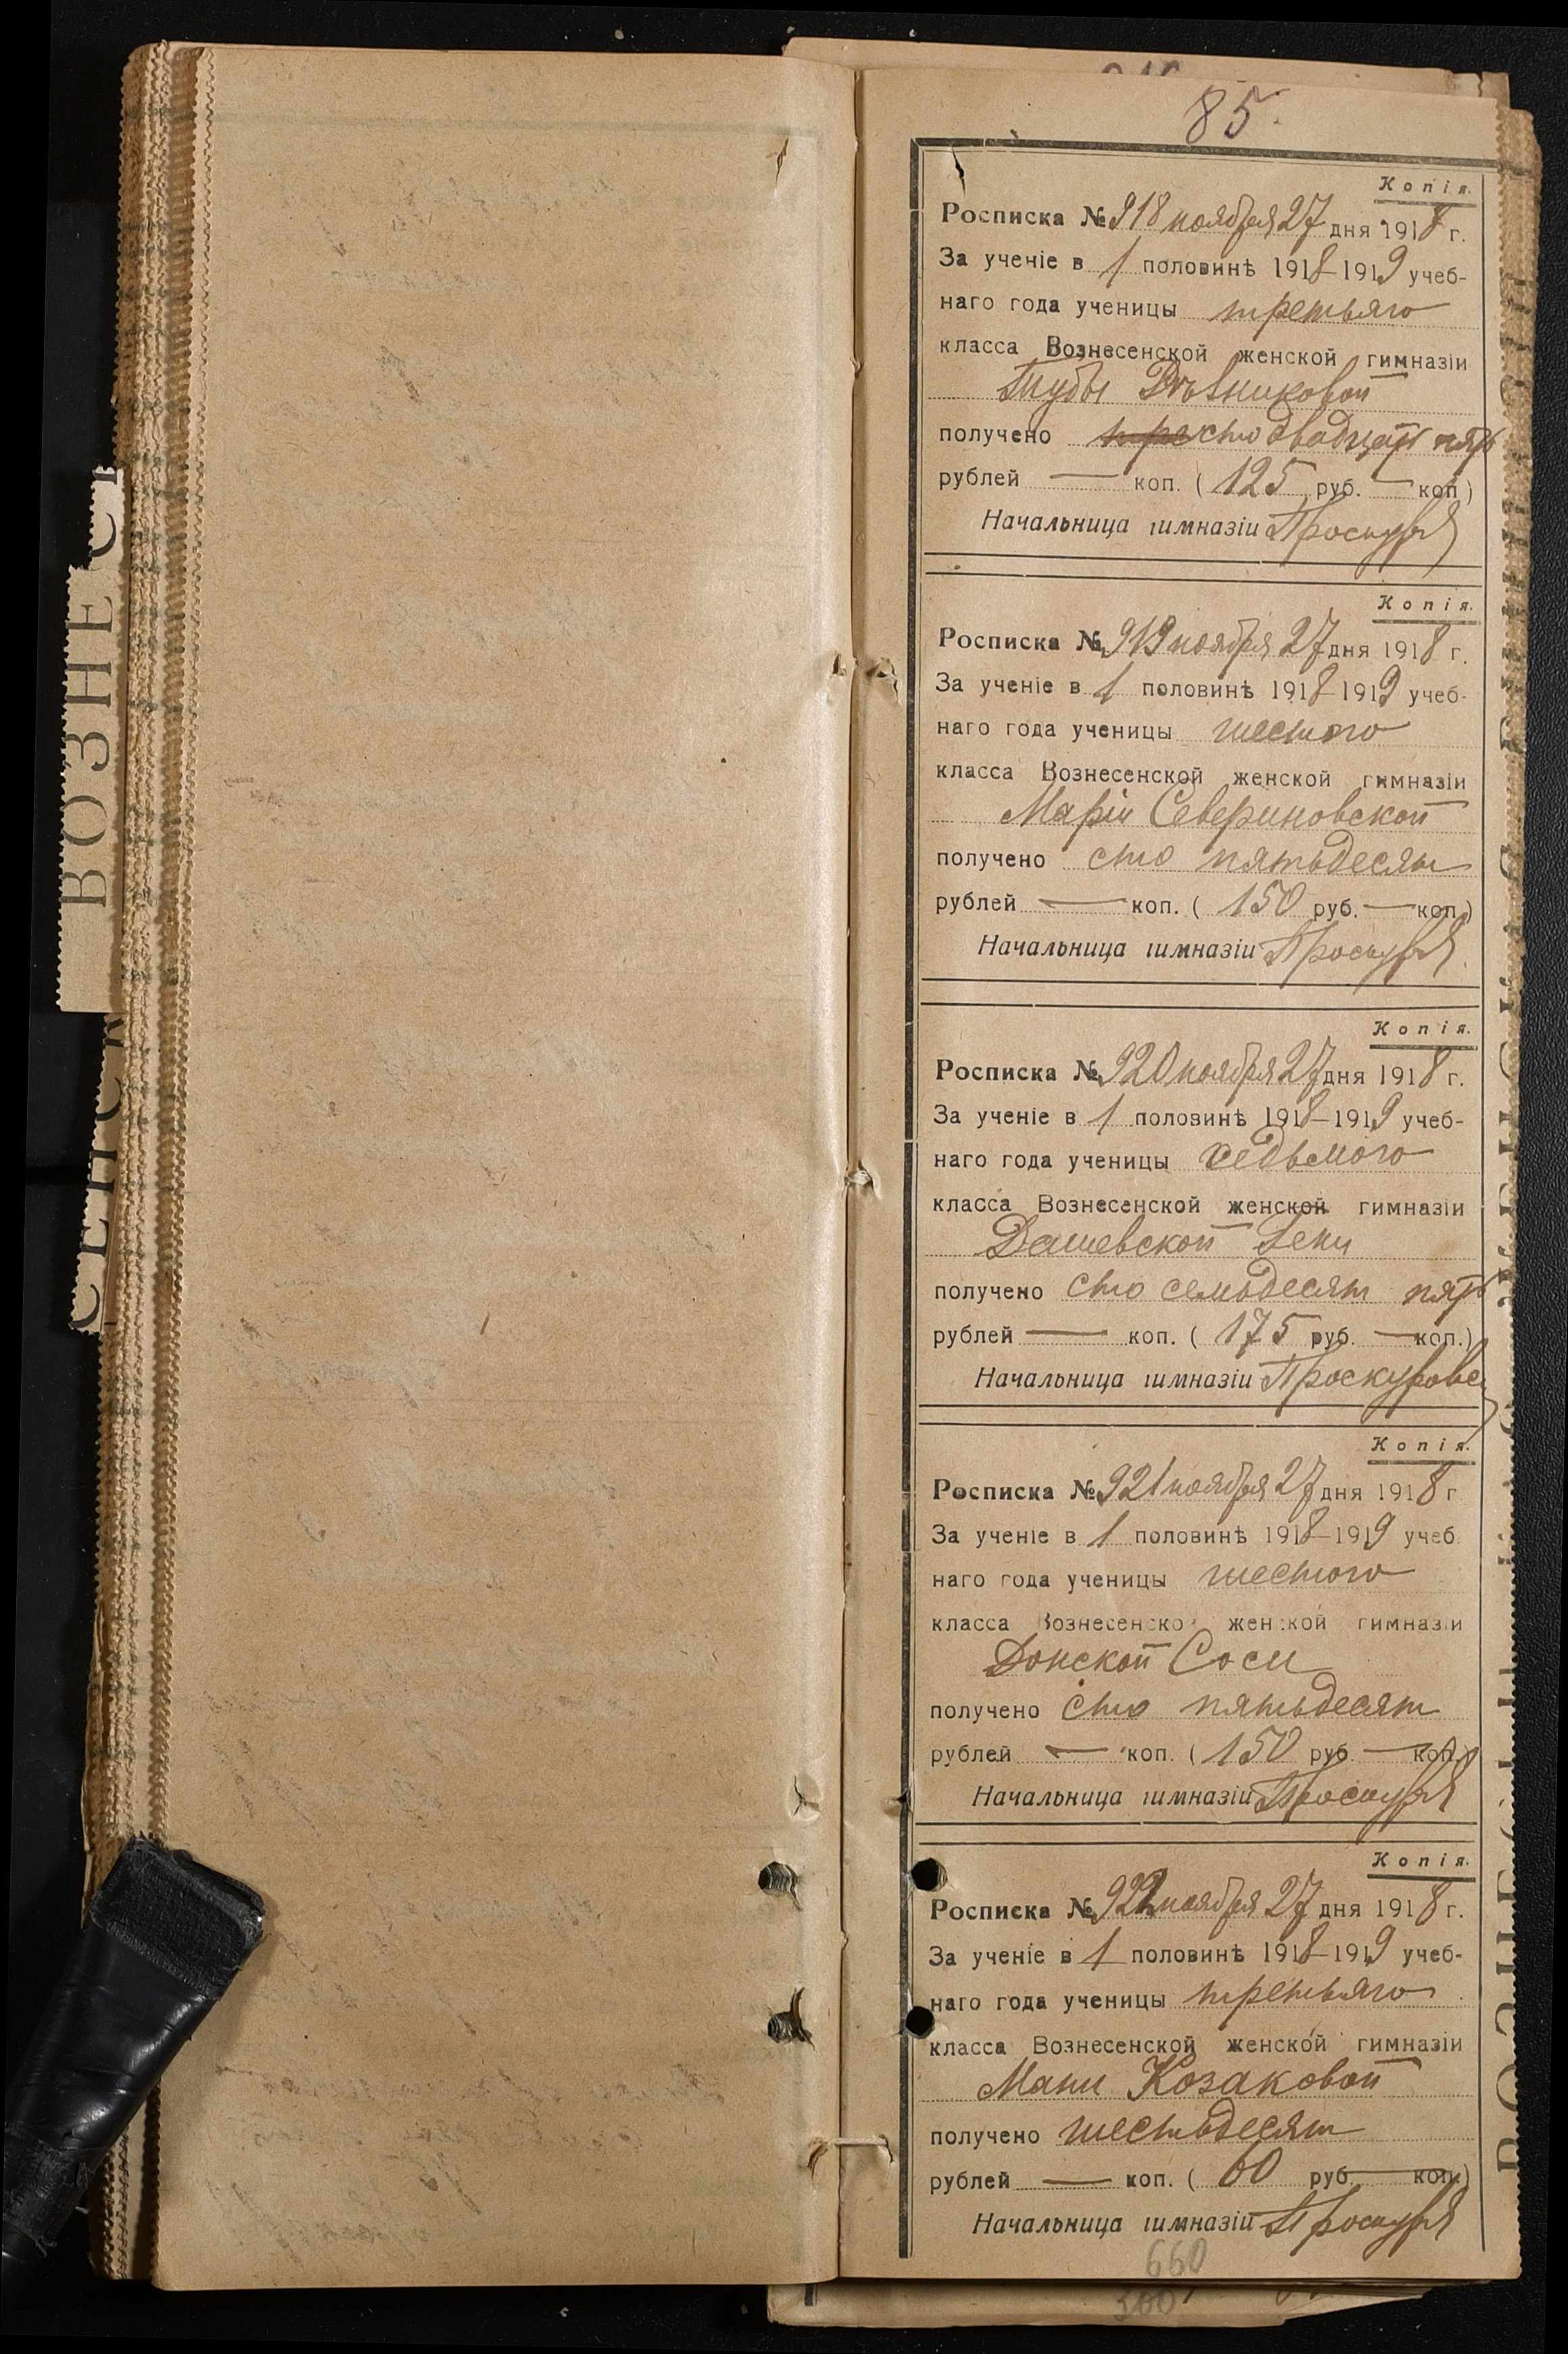 85.
Копія.
Росписка № 918 ноября 27 дня 1918 г.
За ученіе в 1 половинѣ 1918-1919 учеб-
наго года ученицы третьяго
класса Вознесенской женской гимназіи
получено сто двадцать пять
рублей — коп. (125 руб. — коп.)
Начальница гимназіи Проскур
Копія.
Росписка № 919 ноября 27 дня 1918 г.
За ученіе в 1 половинѣ 1918-1919 учеб-
наго года ученицы шестого
класса Вознесенской женской гимназіи
Маріи Севериновской
получено сто пятьдесят
рублей — коп. (150 руб. — коп.)
Начальница гимназіи Проскур
Копія.
Росписка № 920 ноября 27 дня 1918 г.
За ученіе в 1 половинѣ 1918-1919 учеб-
наго года ученицы седьмого
класса Вознесенской женской гимназіи
Дашевской
получено сто семьдесят пять
рублей — коп. (175 руб. — коп.)
Начальница гимназіи Проскуровс
Копія.
Росписка № 921 ноября 27 дня 1918 г
За ученіе в 1 половинѣ 1918-1919 учеб.
наго года ученицы шестого
класса Вознесенской женской гимназіи
Донской Соси
получено сто пятьдесят
рублей — коп. (150 руб. — коп.)
Начальница гимназіи Проскур
Копія.
Росписка № 922 ноября 27 дня 1918 г.
За ученіе в 1 половинѣ 1918-1919 учеб-
наго года ученицы третьяго
класса Вознесенской женской гимназіи
Мани Козаковой
получено шестьдесят
рублей — коп. (60 руб. — коп.)
Начальница гимназіи Проскур
660
300
ВОЗНЕС